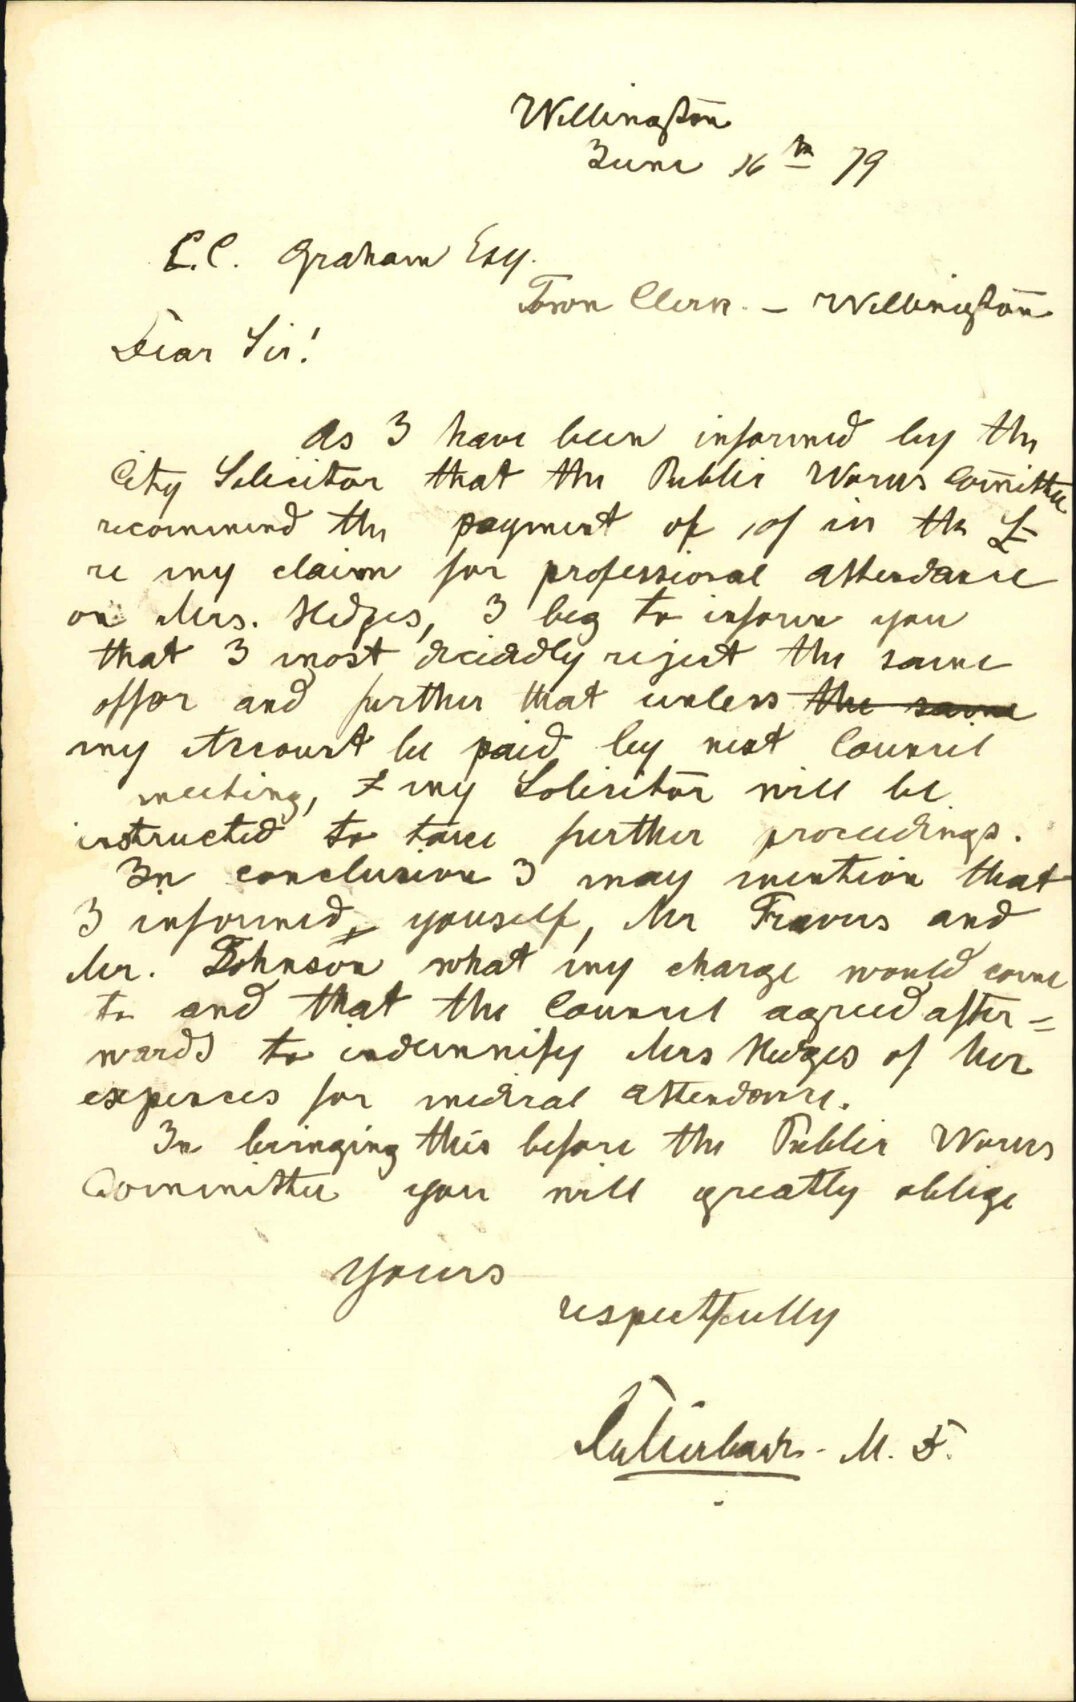 Wellington
June 16th 79
C.C. Graham Esq.
Town Clerk. – Wellington
Dear Sir!
As I have been informed by the
City Solicitor that the Public Works Committee
recommend the payment of 10/ in the £
re my claim for professional attendance
on Mrs. Hedges, I beg to inform you
that I most decidedly reject the same
offer and further that unless the same
my Account be paid by next Council
meeting, my Solicitor will be
instructed to take further proceedings.
In conclusion I may mention that
I informed, youself, Mr Travers and
Mr. Johnson what my charge would come
to and that the Council agreed after=
wards to indemnify Mrs Hedges of her
expences for medical attendance.
In bringing this before the Public Works
Committee you will greatly oblige
Yours
respectfully
M. D.